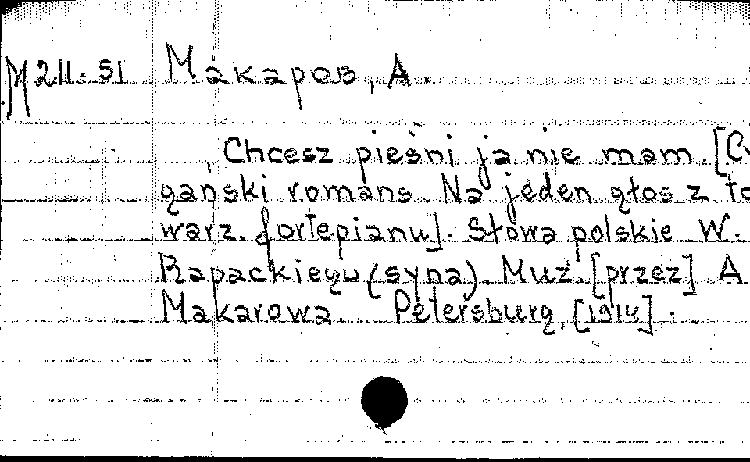 M 211.51 Макаров, А.
Chcesz pieśni ja nie mam. [Cy
gański romans. Na jeden głos z to
warz. fortepianu]. Słowa polskie W.
Rapackiego (syna). Muz. [przez] A
Makarowa. Petersburg, [1914].